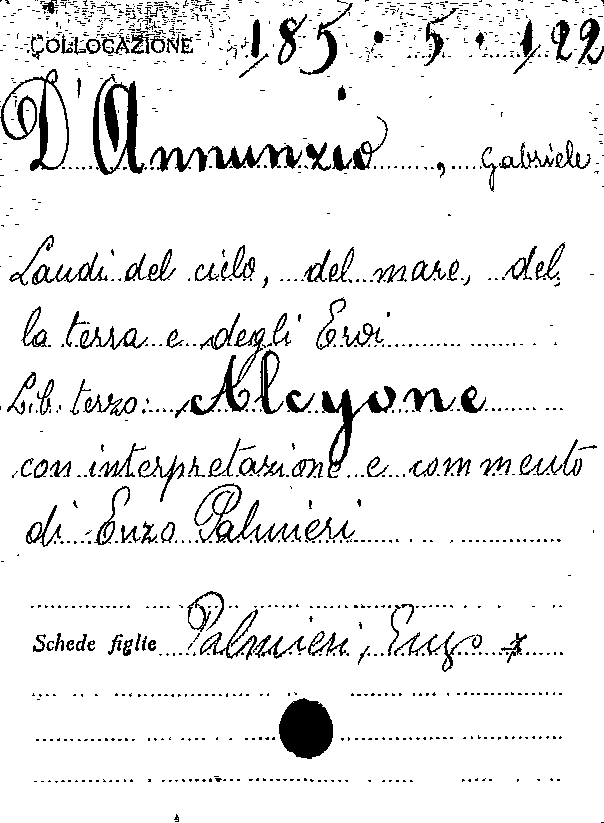 COLLOCAZIONE 185.5.122
D'Annunzio, Gabriele
Laudi del cielo, del mare, del
la terra e degli Eroi
Lib. terzo: Alcyone
con interpretazione e commento
di Enzo Palmieri
Schede figlie Palmieri, Enzo